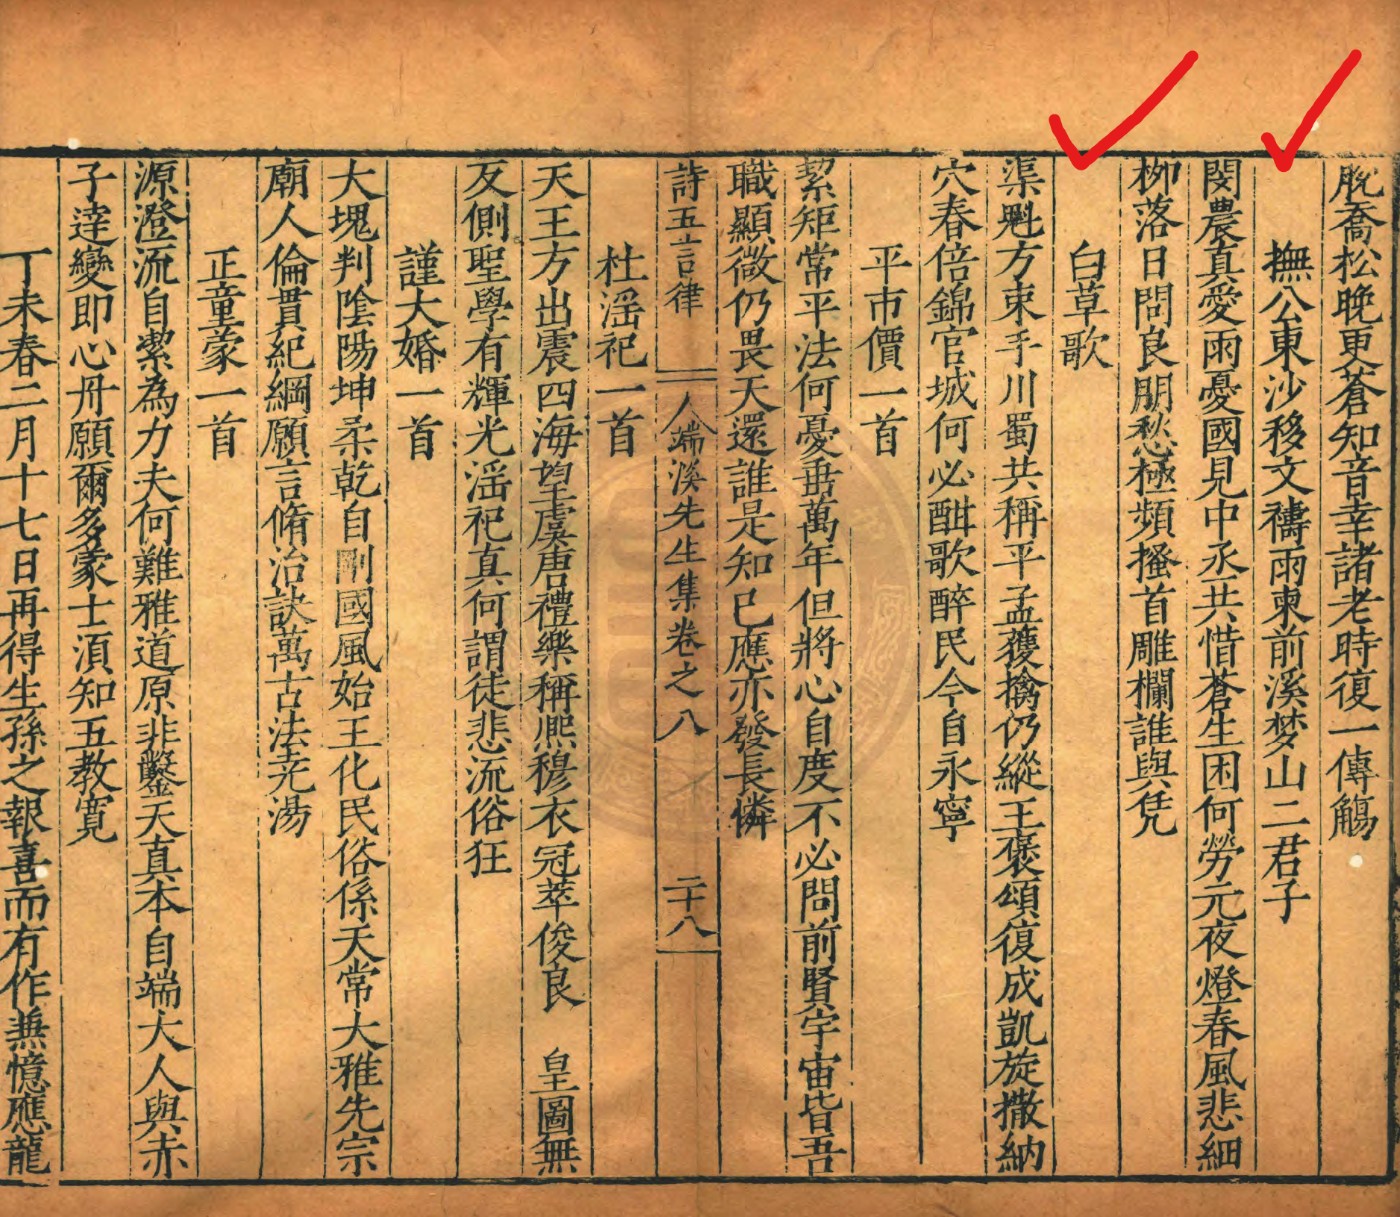 脫喬松晚更蒼知音幸諸老時復一傳觴
撫公東沙移文禱雨柬前溪梦山二君子
閔農真愛雨憂國見中丞共惜蒼生困何勞元夜燈春風悲細
栁落日問良朋愁極頻搔首雕欄誰與凭
白草歌
渠魁方束手川蜀共稱平孟獲擒仍縱王褒頌復成凱旋撒納
穴春倍錦官城何必酣歌醉民今自永寧
平市價一首
絜矩常平法何憂畨萬年但將心自度不必問前賢宇宙皆吾
職顯微仍畏天還誰是知已應亦發長憐
詩五言律
人端溪先生集卷之八
二十八
杜淫祀一首
天王方出震四海望虞唐禮樂稱熈穆衣冠萃俊良 皇圖無
反側聖學有輝光淫祀真何謂徒悲流俗狂
謹大婚一首
大塊判陰陽坤柔乾自剛國風始王化民俗係天常大雅先宗
廟人倫貫紀綱願言脩治訣萬古法尭湯
正童蒙一首
源澄流自潔為力夫何難雅道原非鑿天真本自端大人與赤
子逹變即心丹願爾多蒙士湏知五教寬
丁未春二月十七日再得生孫之報喜而有作無憶應龍